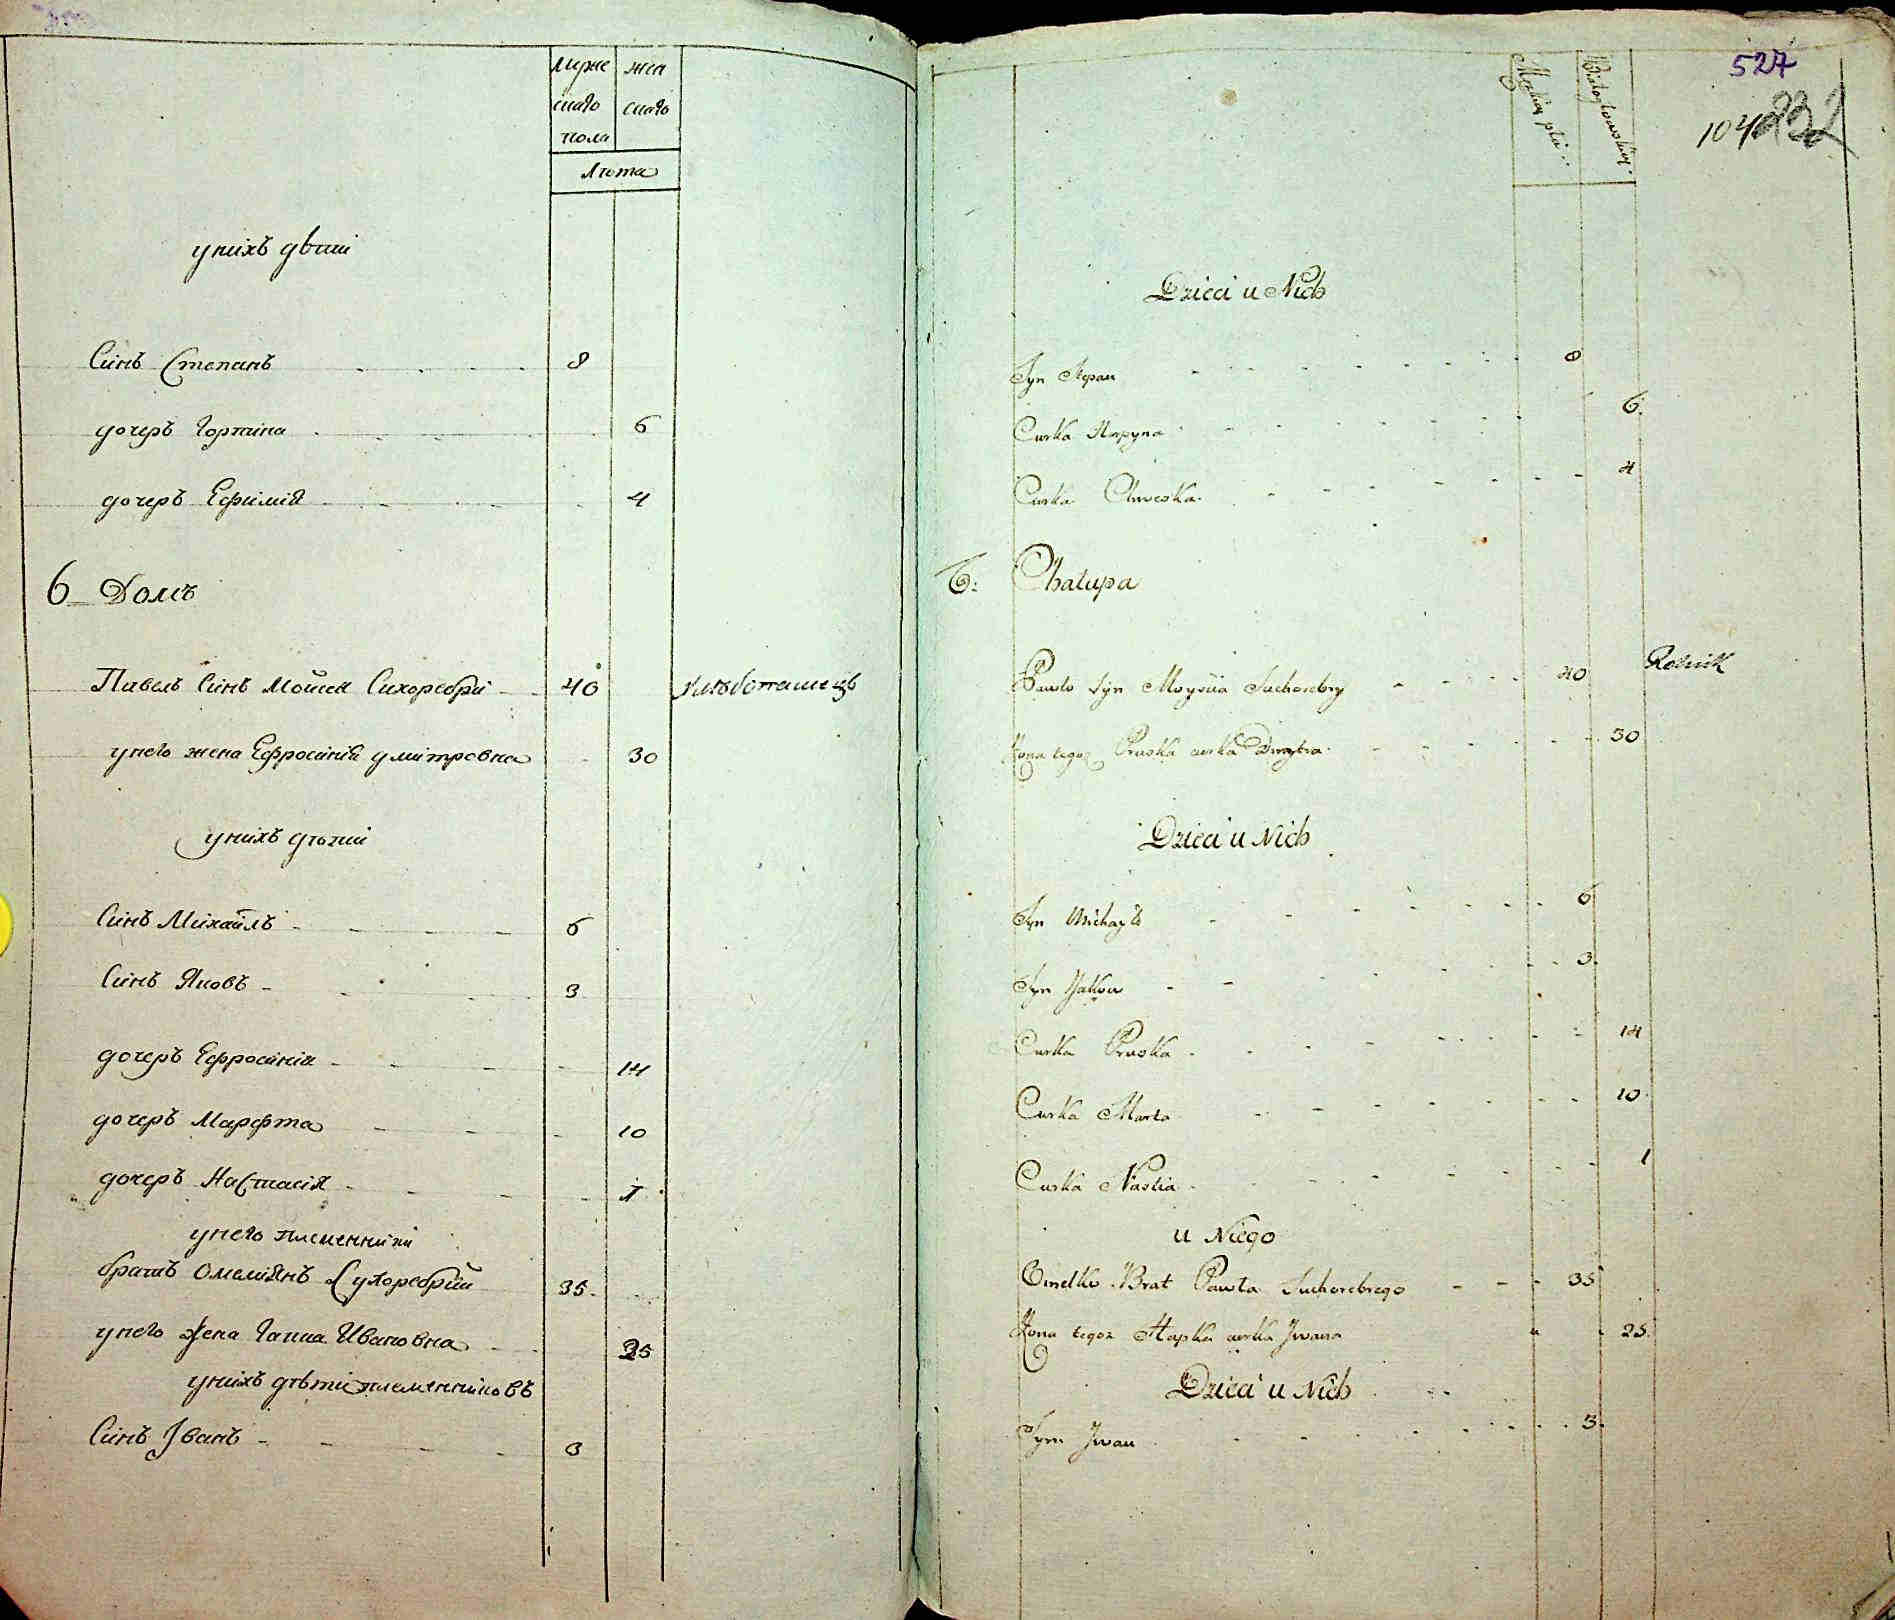 муже жен
скаго скаго
пола
Лѣта
унихъ дѣти
Синъ Степанъ 8
дочеръ Горпина 6
дочеръ Ефимія 4
6 Домъ
Павелъ Синъ Мойсея Сухоребрій 40 хлѣбопашецъ
унего жена Ефросинія дмітровна 30
унихъ дѣтій
Синъ Михайлъ 6
Синъ Яковъ 3
дочеръ Ефросинія 14
дочеръ Марфта 10
дочеръ Настасія 1
унего племенники
братъ Омелянъ Сухоребрій 35
унего жена Ганна Ивановна 25
унихъ дѣти племенниковъ
Синъ Іванъ 3
527
104 232
Męskiey płci
Białogłowskiey
Dzieci u Nich
Syn Stepan 8
Curka Harpyna 6
Curka 4
6: Chałupa
Pawło Syn Moysija Suchorebry 40 Rolnik
Żona tegoż Pruska curka Dmytra 30
Dzieci u Nich
Syn Michayło 6
Syn Jakow 3
Curka Pruska 14
Curka Marta 10
Curka Nastia 1
u Niego
Omelko Brat Pawła Suchorebrego 35
Żona tegoż Hapka curka Jwana 25
Dzieci u Nich
Syn Jwan 3